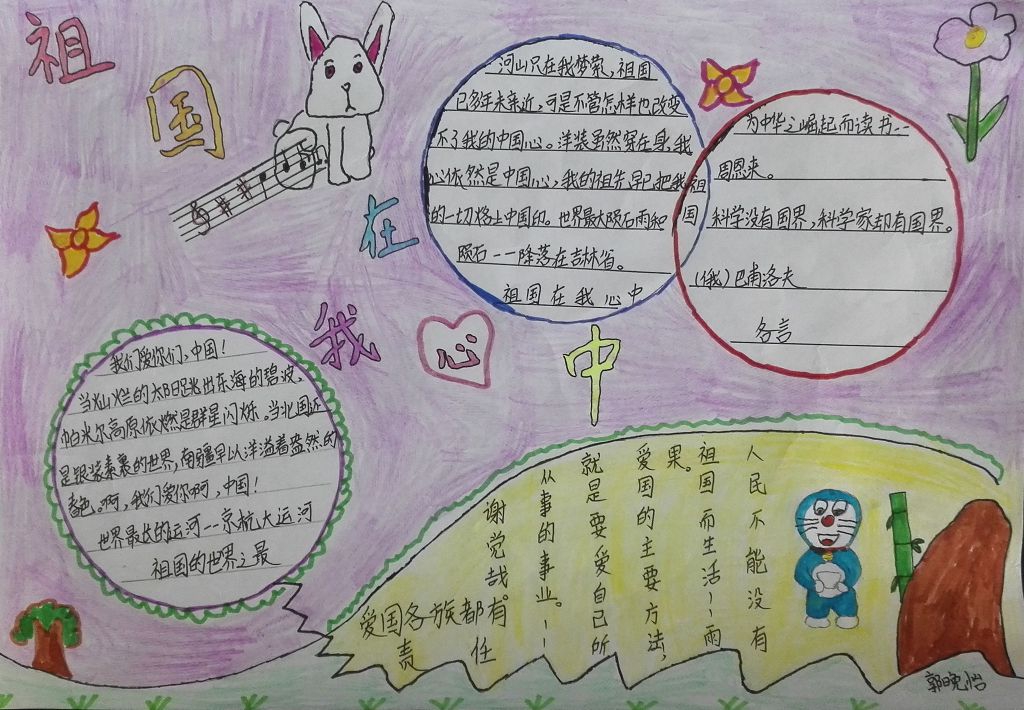 祖国在我心中
河山只在我梦萦，祖国
已多年未亲近，可是不管怎样也改变
不了我的中国心。洋装虽然穿在身，我
心依然是中国心，我的祖先早已把我
的一切烙上中国印。世界最大陨石雨和
陨石--降落在吉林省。
祖国在我心中
为中华之崛起而读书--
周恩来。
祖国
科学没有国界，科学家却有国界。
(俄)巴甫洛夫
名言
我们爱你们，中国！
当灿烂的太阳跳出东海的碧波，
帕米尔高原依燃是群星闪烁。当北国还
是银装素裹的世界，南疆早以洋溢着盎然的
春色。啊，我们爱你啊，中国！
世界最长的运河--京杭大运河
祖国的世界之最
人民不能没有
祖国而生活--雨
果。
爱国的主要方法，
就是要爱自己所
从事的事业。--
谢觉哉。
爱国各族都有
责任
郭晚怡